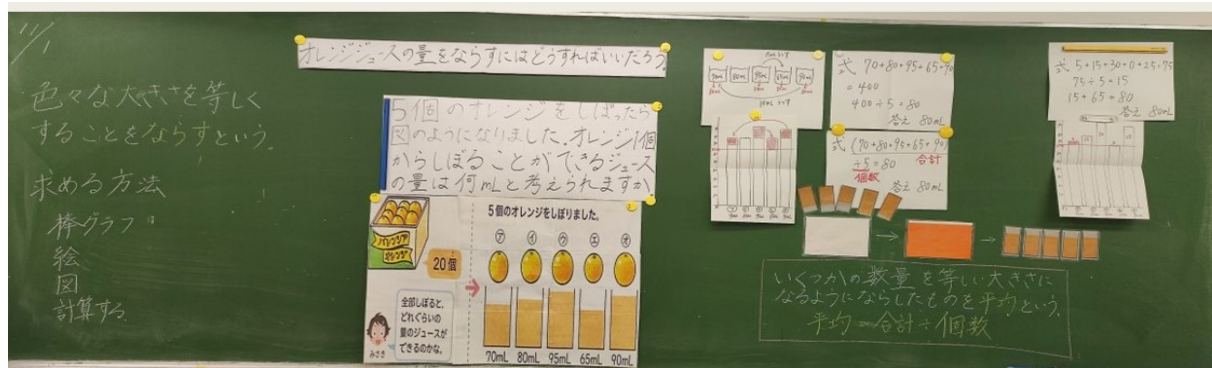 11/1
色々な大きさを等しく
することをならすという。
求める方法
棒グラフ
絵
図
計算する
オレンジジュースの量をならすにはどうすればいいだろう。
5個のオレンジをしぼったら
図のようになりました。オレンジ1個
からしぼることができるジュース
の量は何mLと考えられますか
バレンシア
オレンジ
20個
全部しぼると、
どれくらいの
量のジュースが
できるのかな。
みさき
5個のオレンジをしぼりました。
ア イ ウ エ オ
70mL 80mL 95mL 65mL 90mL
式 70+80+95+65+90
=400
400÷5=80
答え 80mL
式 (70+80+95+65+90)
÷5=80 合計
個数
答え 80mL
式 5+15+30+0+25=75
75÷5=15
15+65=80
答え 80mL
いくつかの数量を等しい大きさに
なるようにならしたものを平均という。
平均=合計÷個数